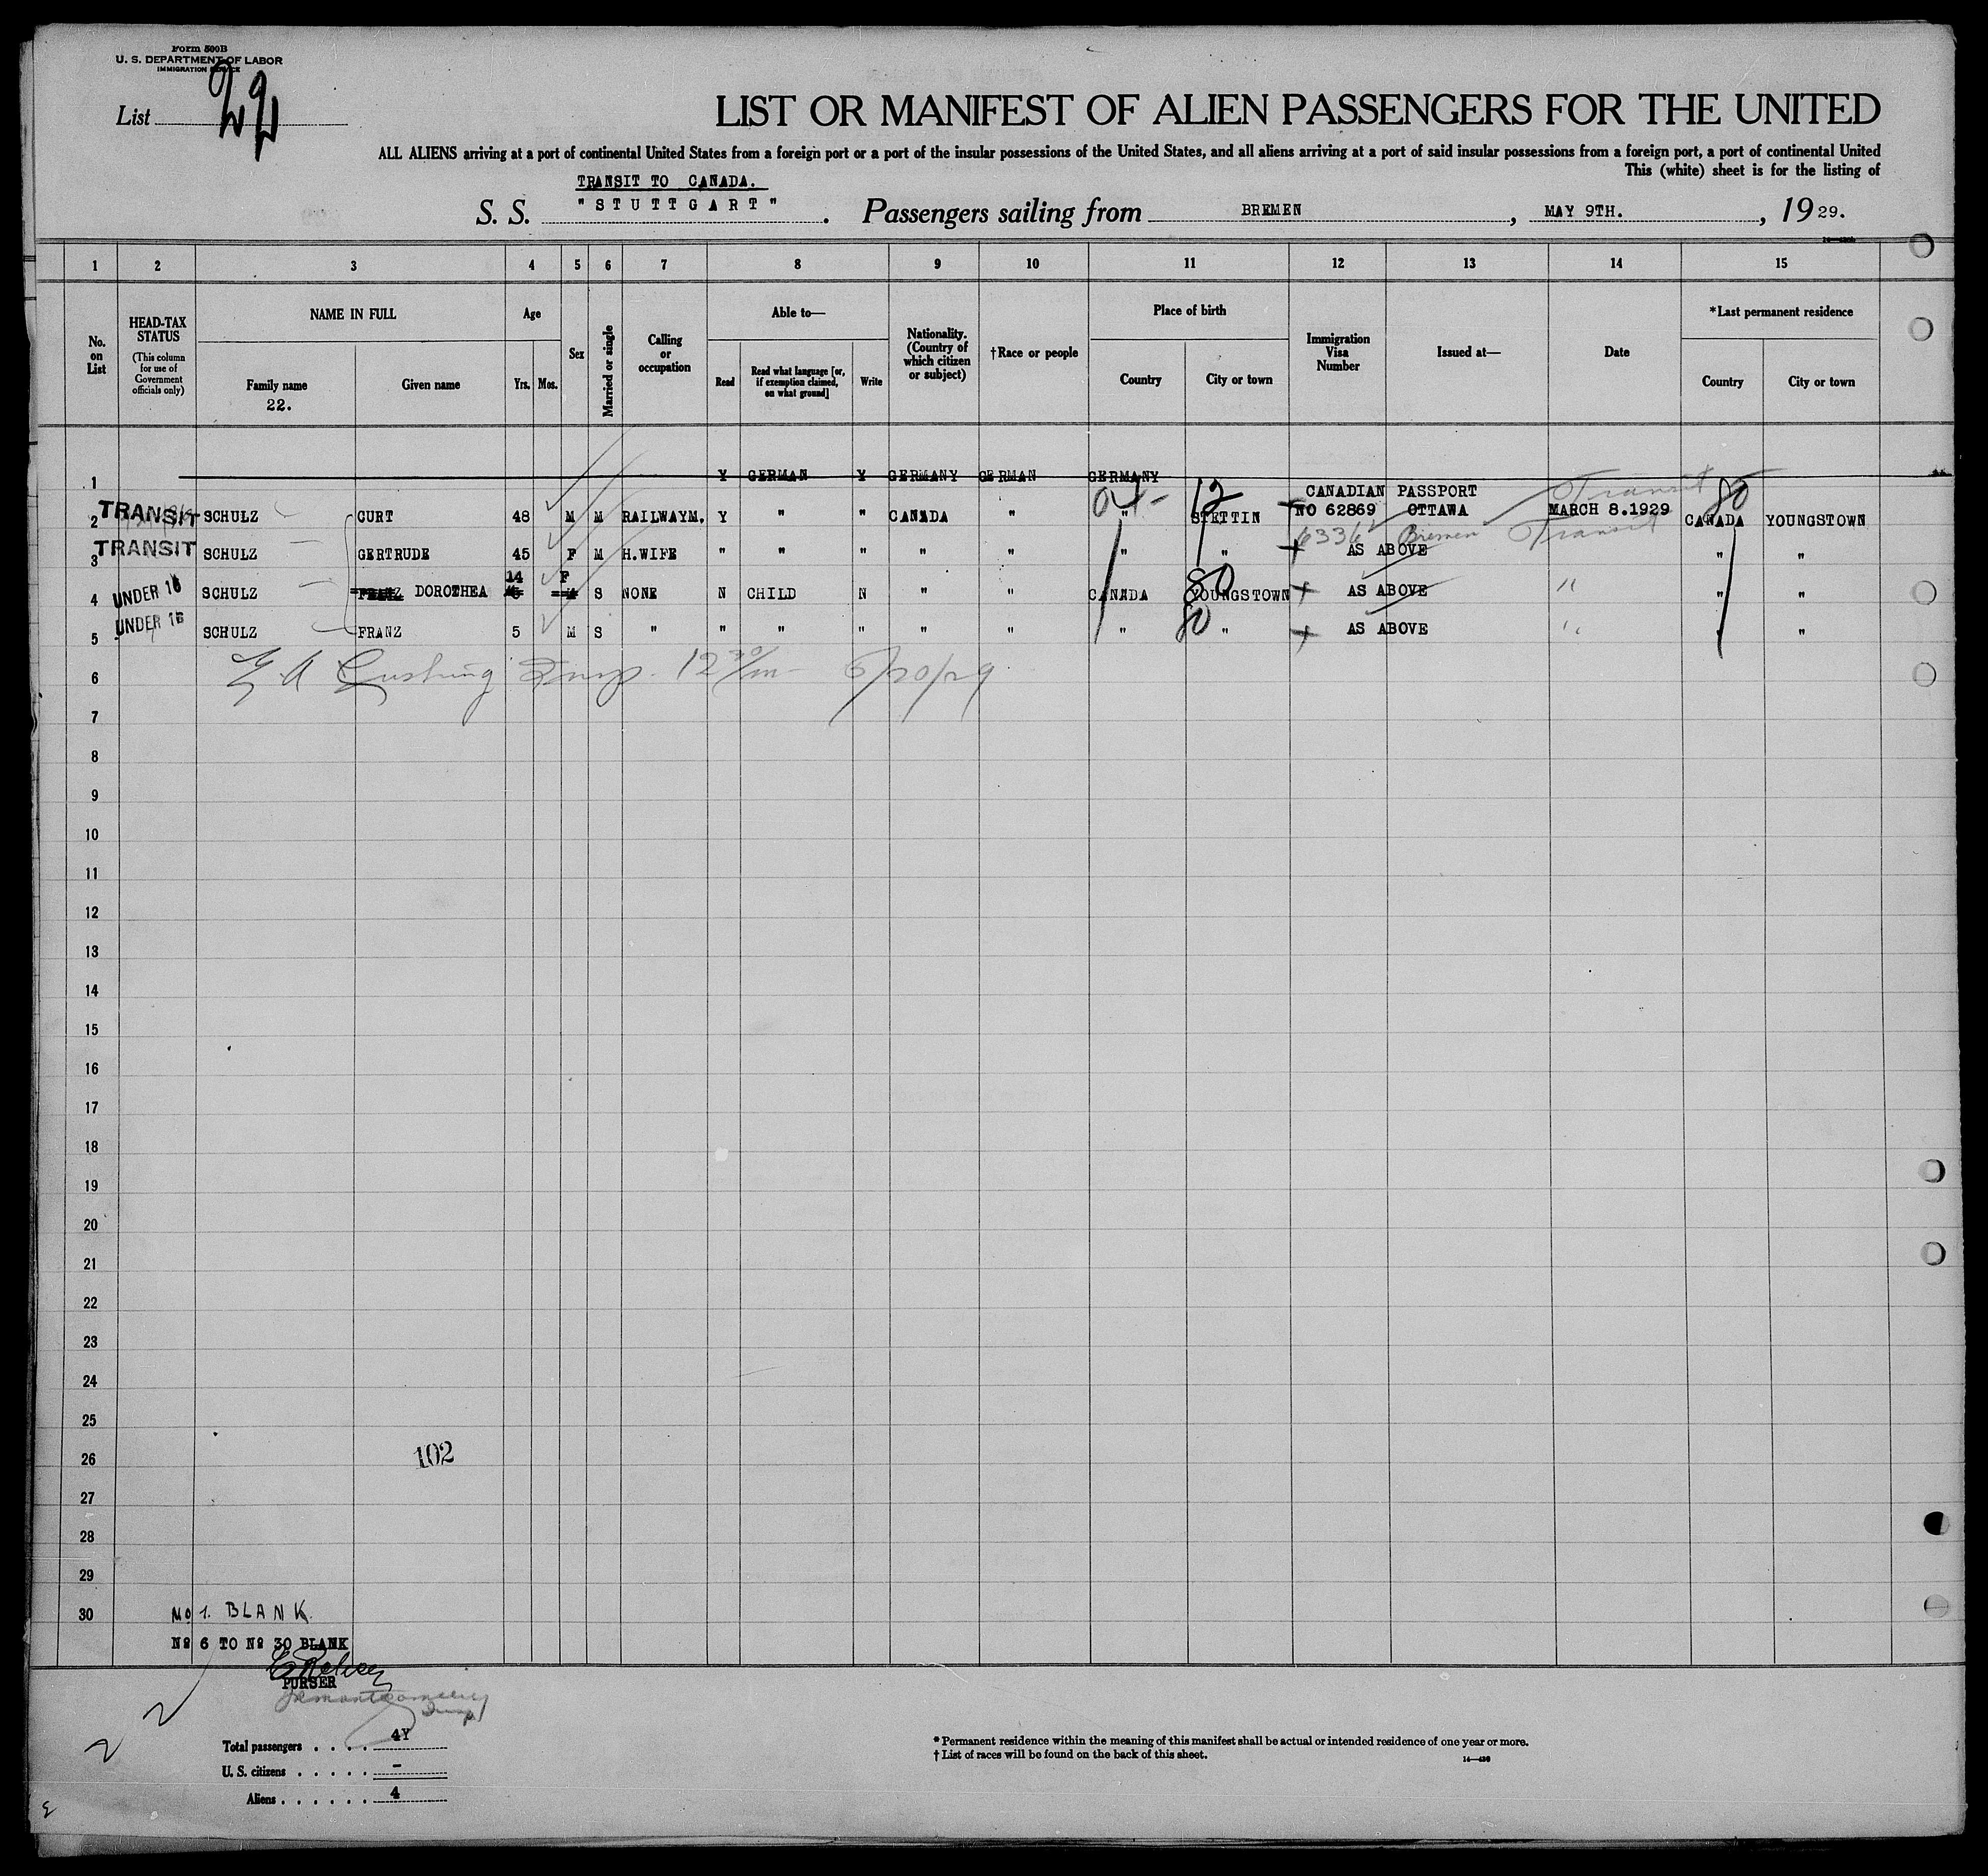 Form 500B
U. S. DEPARTMENT OF LABOR
IMMIGRATION SERVICE
List 22
LIST OR MANIFEST OF ALIEN PASSENGERS FOR THE UNITED
ALL ALIENS arriving at a port of continental United States from a foreign port or a port of the insular possessions of the United States, and all aliens arriving at a port of said insular possessions from a foreign port, a port of continental United
This (white) sheet is for the listing of
TRANSIT TO CANADA.
S. S. "STUTTGART". Passengers sailing from BREMEN, MAY 9TH., 1929.
1 2 3 4 5 6 7 8 9 10 11 12 13 14 15
No. on List
HEAD-TAX STATUS
(This column for use of Government officials only)
NAME IN FULL
Family name
22.
Given name
Age
Yrs. Mos.
Sex
Married or single
Calling or occupation
Able to—
Read
Read what language [or, if exemption claimed, on what ground]
Write
Nationality. (Country of which citizen or subject)
†Race or people
Place of birth
Country
City or town
Immigration Visa Number
Issued at—
Date
*Last permanent residence
Country
City or town
1 Y GERMAN Y GERMANY GERMAN GERMANY
Transit
CANADIAN PASSPORT
2 TRANSIT SCHULZ CURT 48 M M RAILWAYM. Y " " CANADA " " 12 STETTIN NO 62869 OTTAWA MARCH 8.1929 80 CANADA YOUNGSTOWN
Bremen Transit
3 TRANSIT SCHULZ GERTRUDE 45 F M H.WIFE " " " " " " " AS ABOVE " "
4 UNDER 16 SCHULZ FRANZ DOROTHEA 14 F S NONE N CHILD N " " CANADA 80 YOUNGSTOWN AS ABOVE " " "
5 UNDER 16 SCHULZ FRANZ 5 M S " " " " " " " 80 " AS ABOVE " " "
6 E A Cushing Insp. 12 30/m 5/20/29
7
8
9
10
11
12
13
14
15
16
17
18
19
20
21
22
23
24
25
26 102
27
28
29
30
No 1. BLANK
No 6 TO No 30 BLANK
PURSER
Total passengers . . . . 4Y
U. S. citizens . . . . . -
Aliens . . . . . . 4
* Permanent residence within the meaning of this manifest shall be actual or intended residence of one year or more.
† List of races will be found on the back of this sheet.